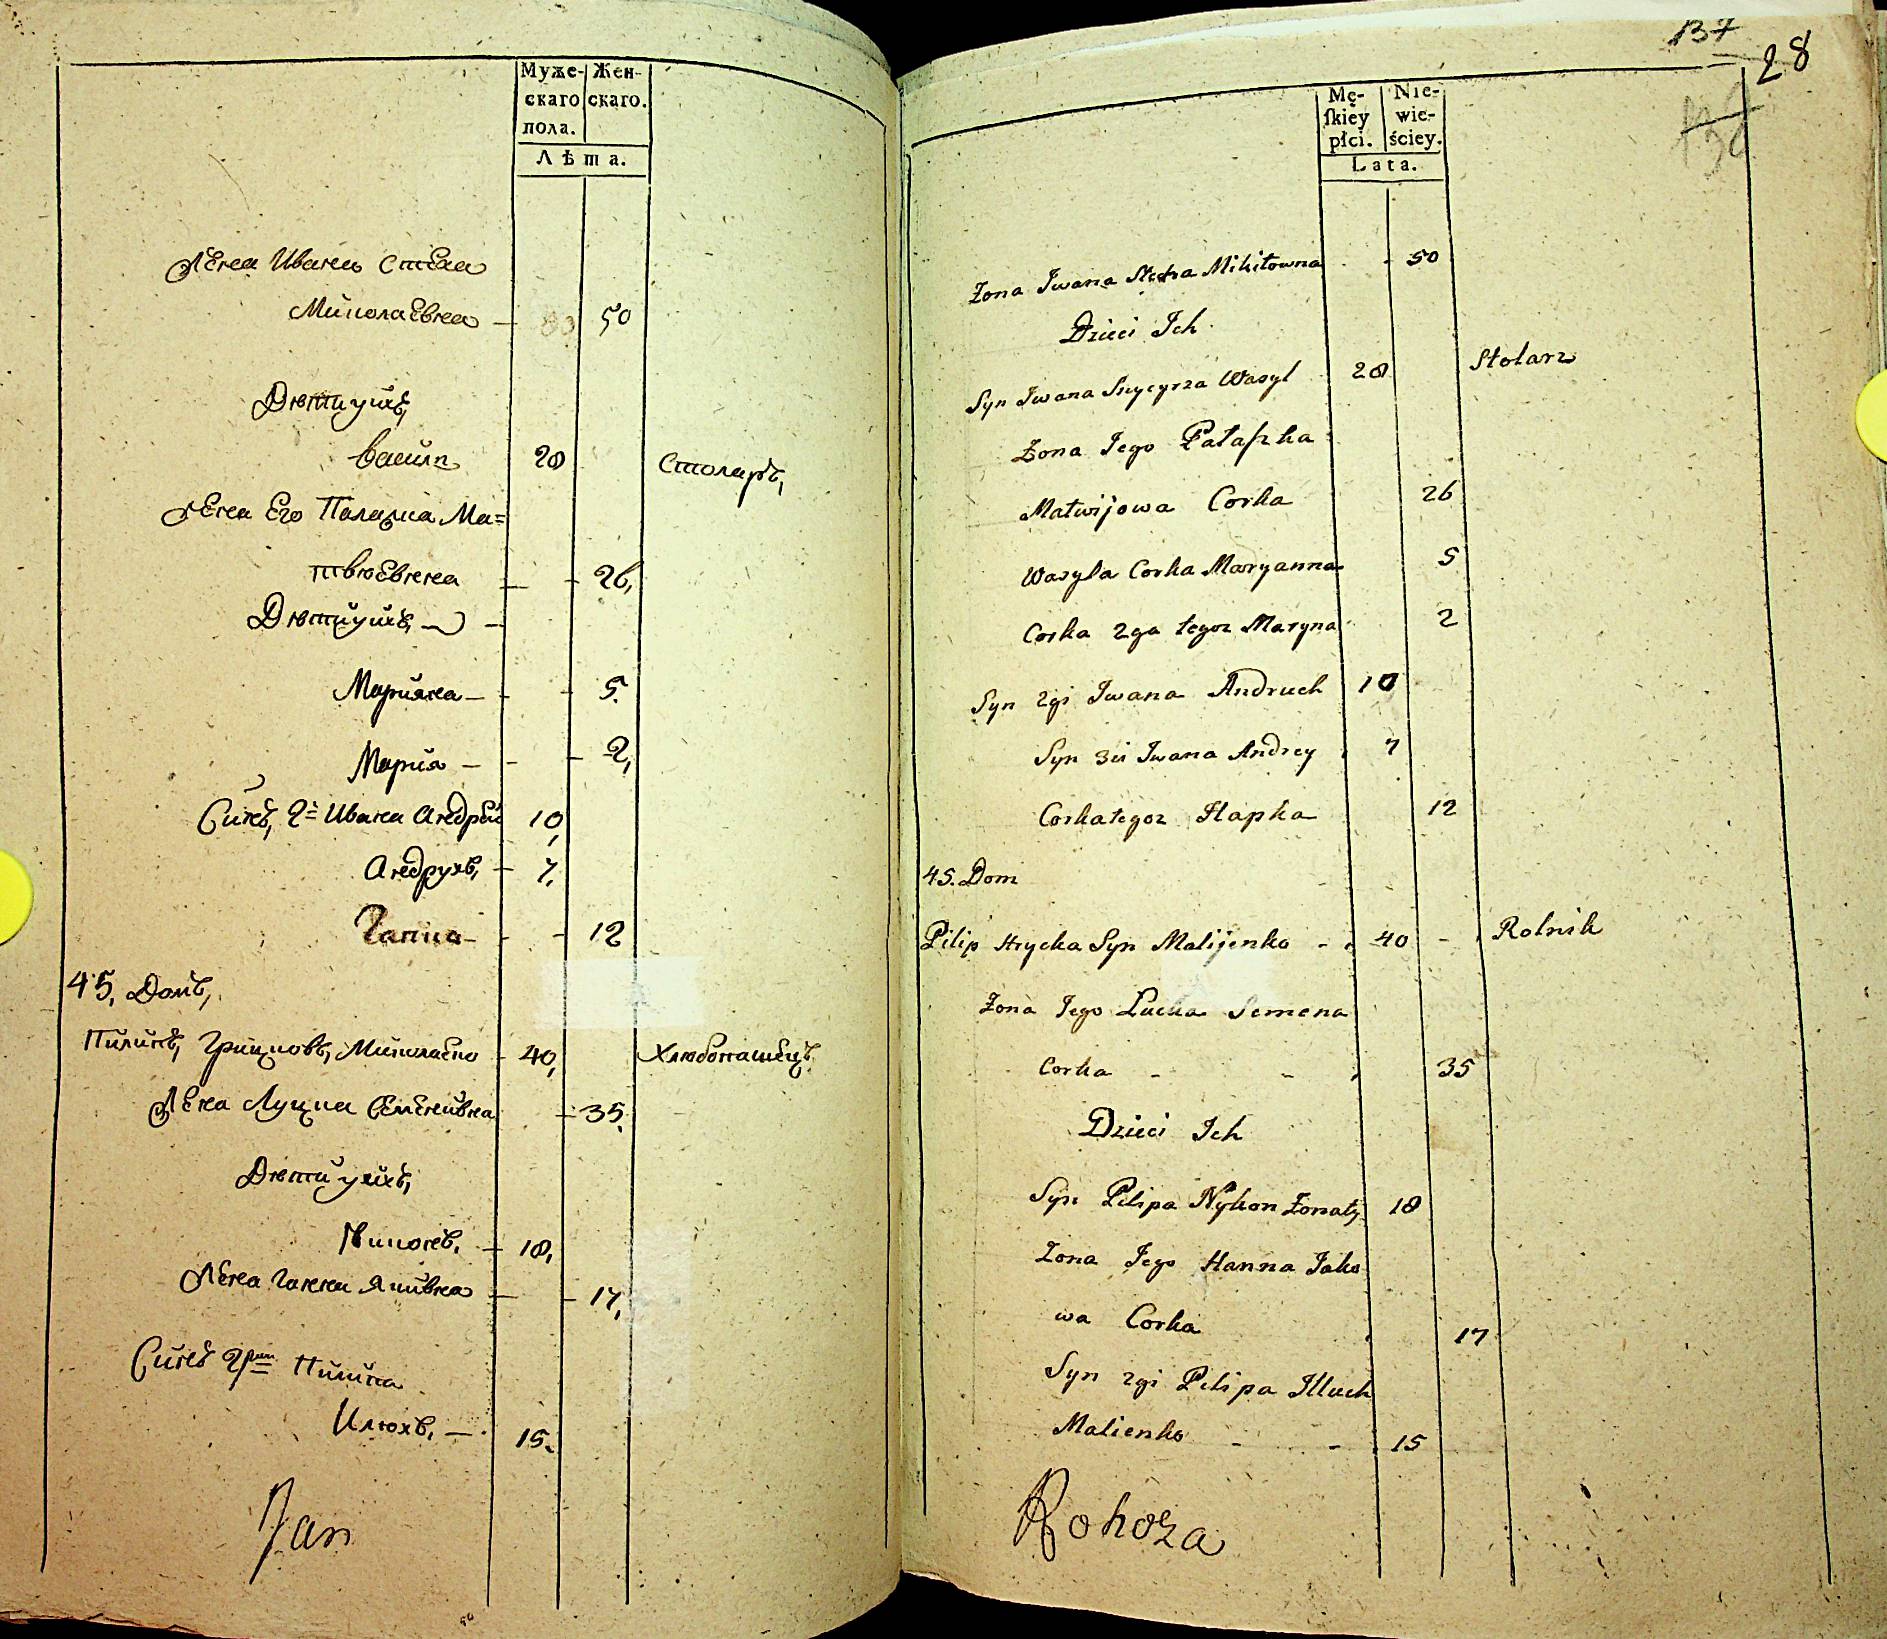 Муже-
скаго
пола.
Жен-
скаго.
Лѣта.
Жена Ивана Стеха
Миколаевна — 50
Дѣти ихъ,
Василь 28 Столяръ,
Жена Его Палажка Ма=
твѣевна — 26,
Дѣти ихъ, —
Марияна — 5.
Мария — 2,
Синъ, 2й Ивана Андрей 10,
Андрухъ, — 7.
Гапка — 12
45, Домъ,
Пилипъ, Грицковъ, 40, Хлѣбопашецъ
Жена Луцка Семенивна — 35.
Дѣти ихъ,
Никонъ, — 18,
Жена Ганна — 17,
Синъ 2й Пилипа
Илюхъ, — 15.
Jan
137
28
Mę-
ſkiey
płci.
Nie-
wie-
ściey.
Lata.
Żona Iwana Mikitowna 50
Dzieci Ich
Syn Iwana Snycyrza Wasyl 28 Stolarz
Żona Iego Pałaszka
Matwijowa Corka 26
Wasyla Corka Maryanna 5
Corka 2ga tegoz Maryna 2
Syn 2gi Iwana Andruch 10
Syn 3ci Iwana Andrey 7
Corka tegoz Hapka 12
45. Dom
Pilip Hrycka Syn Malijenko - 40 - Rolnik
Żona Iego Lucka Semena
Corka - - 35
Dzieci Ich
Syn Pilipa Nykon Żonaty 18
Żona Iego Hanna Jako
wa Corka 17
Syn 2gi Pilipa Illuch
Malienko - - 15
Rohoza